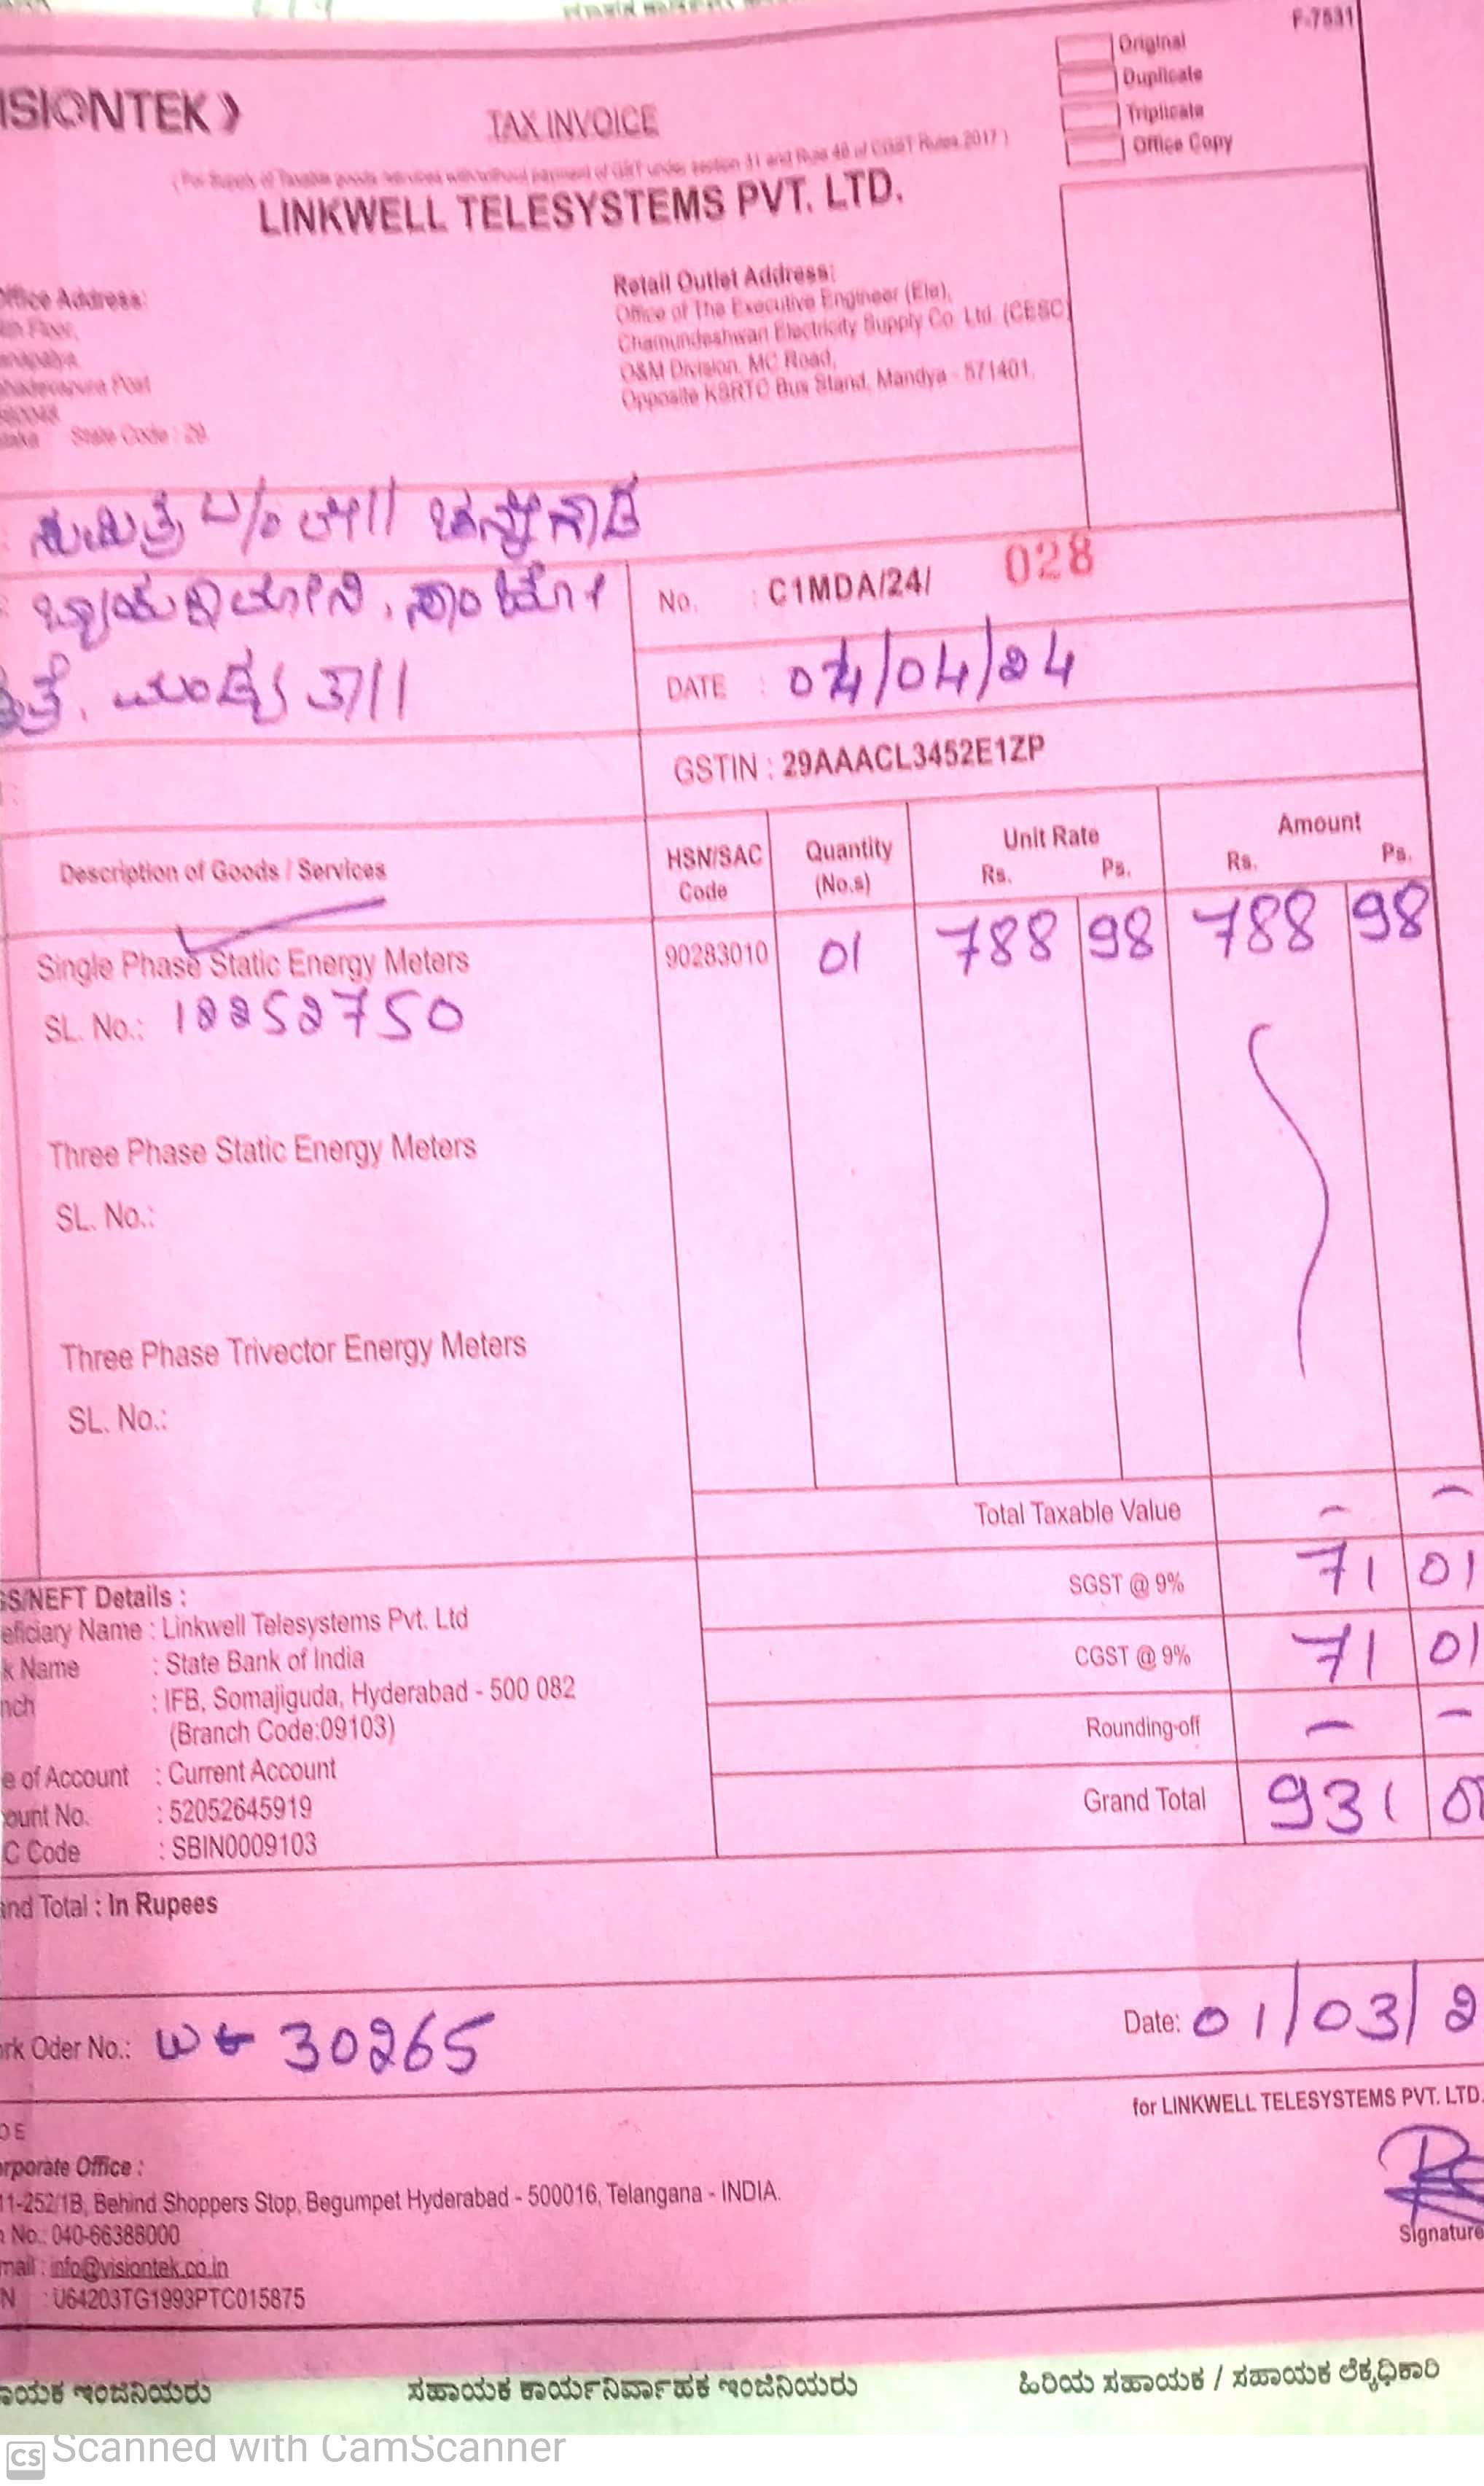 F-7531
Original
Duplicate
Triplicate
Office Copy
ISIONTEK
TAX INVOICE
(For Supply of Taxable goods /services with/without payment of GST under section 31 and Rule 46 of CGST Rules 2017)
LINKWELL TELESYSTEMS PVT. LTD.
ffice Address:
Floor,
Post
State Code : 29
Retail Outlet Address:
Office of The Executive Engineer (Ele),
Chamundeshwari Electricity Supply Co. Ltd. (CESC)
O&M Division, MC Road,
Opposite KSRTC Bus Stand, Mandya - 571401.
No. : C1MDA/24/ 028
DATE : 04/04/24
GSTIN : 29AAACL3452E1ZP
Description of Goods / Services
HSN/SAC Code
Quantity (No.s)
Unit Rate Rs. Ps.
Amount Rs. Ps.
Single Phase Static Energy Meters 90283010 01 788 98 788 98
SL. No.: 12252750
Three Phase Static Energy Meters
SL. No.:
Three Phase Trivector Energy Meters
SL. No.:
Total Taxable Value – –
SGST @ 9% 71 01
CGST @ 9% 71 01
Rounding-off – –
Grand Total 931 0
GS/NEFT Details :
eficiary Name : Linkwell Telesystems Pvt. Ltd
k Name : State Bank of India
nch : IFB, Somajiguda, Hyderabad - 500 082
(Branch Code:09103)
e of Account : Current Account
ount No. : 52052645919
C Code : SBIN0009103
and Total : In Rupees
ork Oder No.: 30265
Date: 01/03/2
for LINKWELL TELESYSTEMS PVT. LTD.
Signature
OE
orporate Office :
11-252/1B, Behind Shoppers Stop, Begumpet Hyderabad - 500016, Telangana - INDIA.
No.: 040-66388000
mail : info@visiontek.co.in
N : U64203TG1993PTC015875
ಾಯಕ ಇಂಜಿನಿಯರು
ಸಹಾಯಕ ಕಾರ್ಯನಿರ್ವಾಹಕ ಇಂಜಿನಿಯರು
ಹಿರಿಯ ಸಹಾಯಕ / ಸಹಾಯಕ ಲೆಕ್ಕಧಿಕಾರಿ
CS Scanned with CamScanner